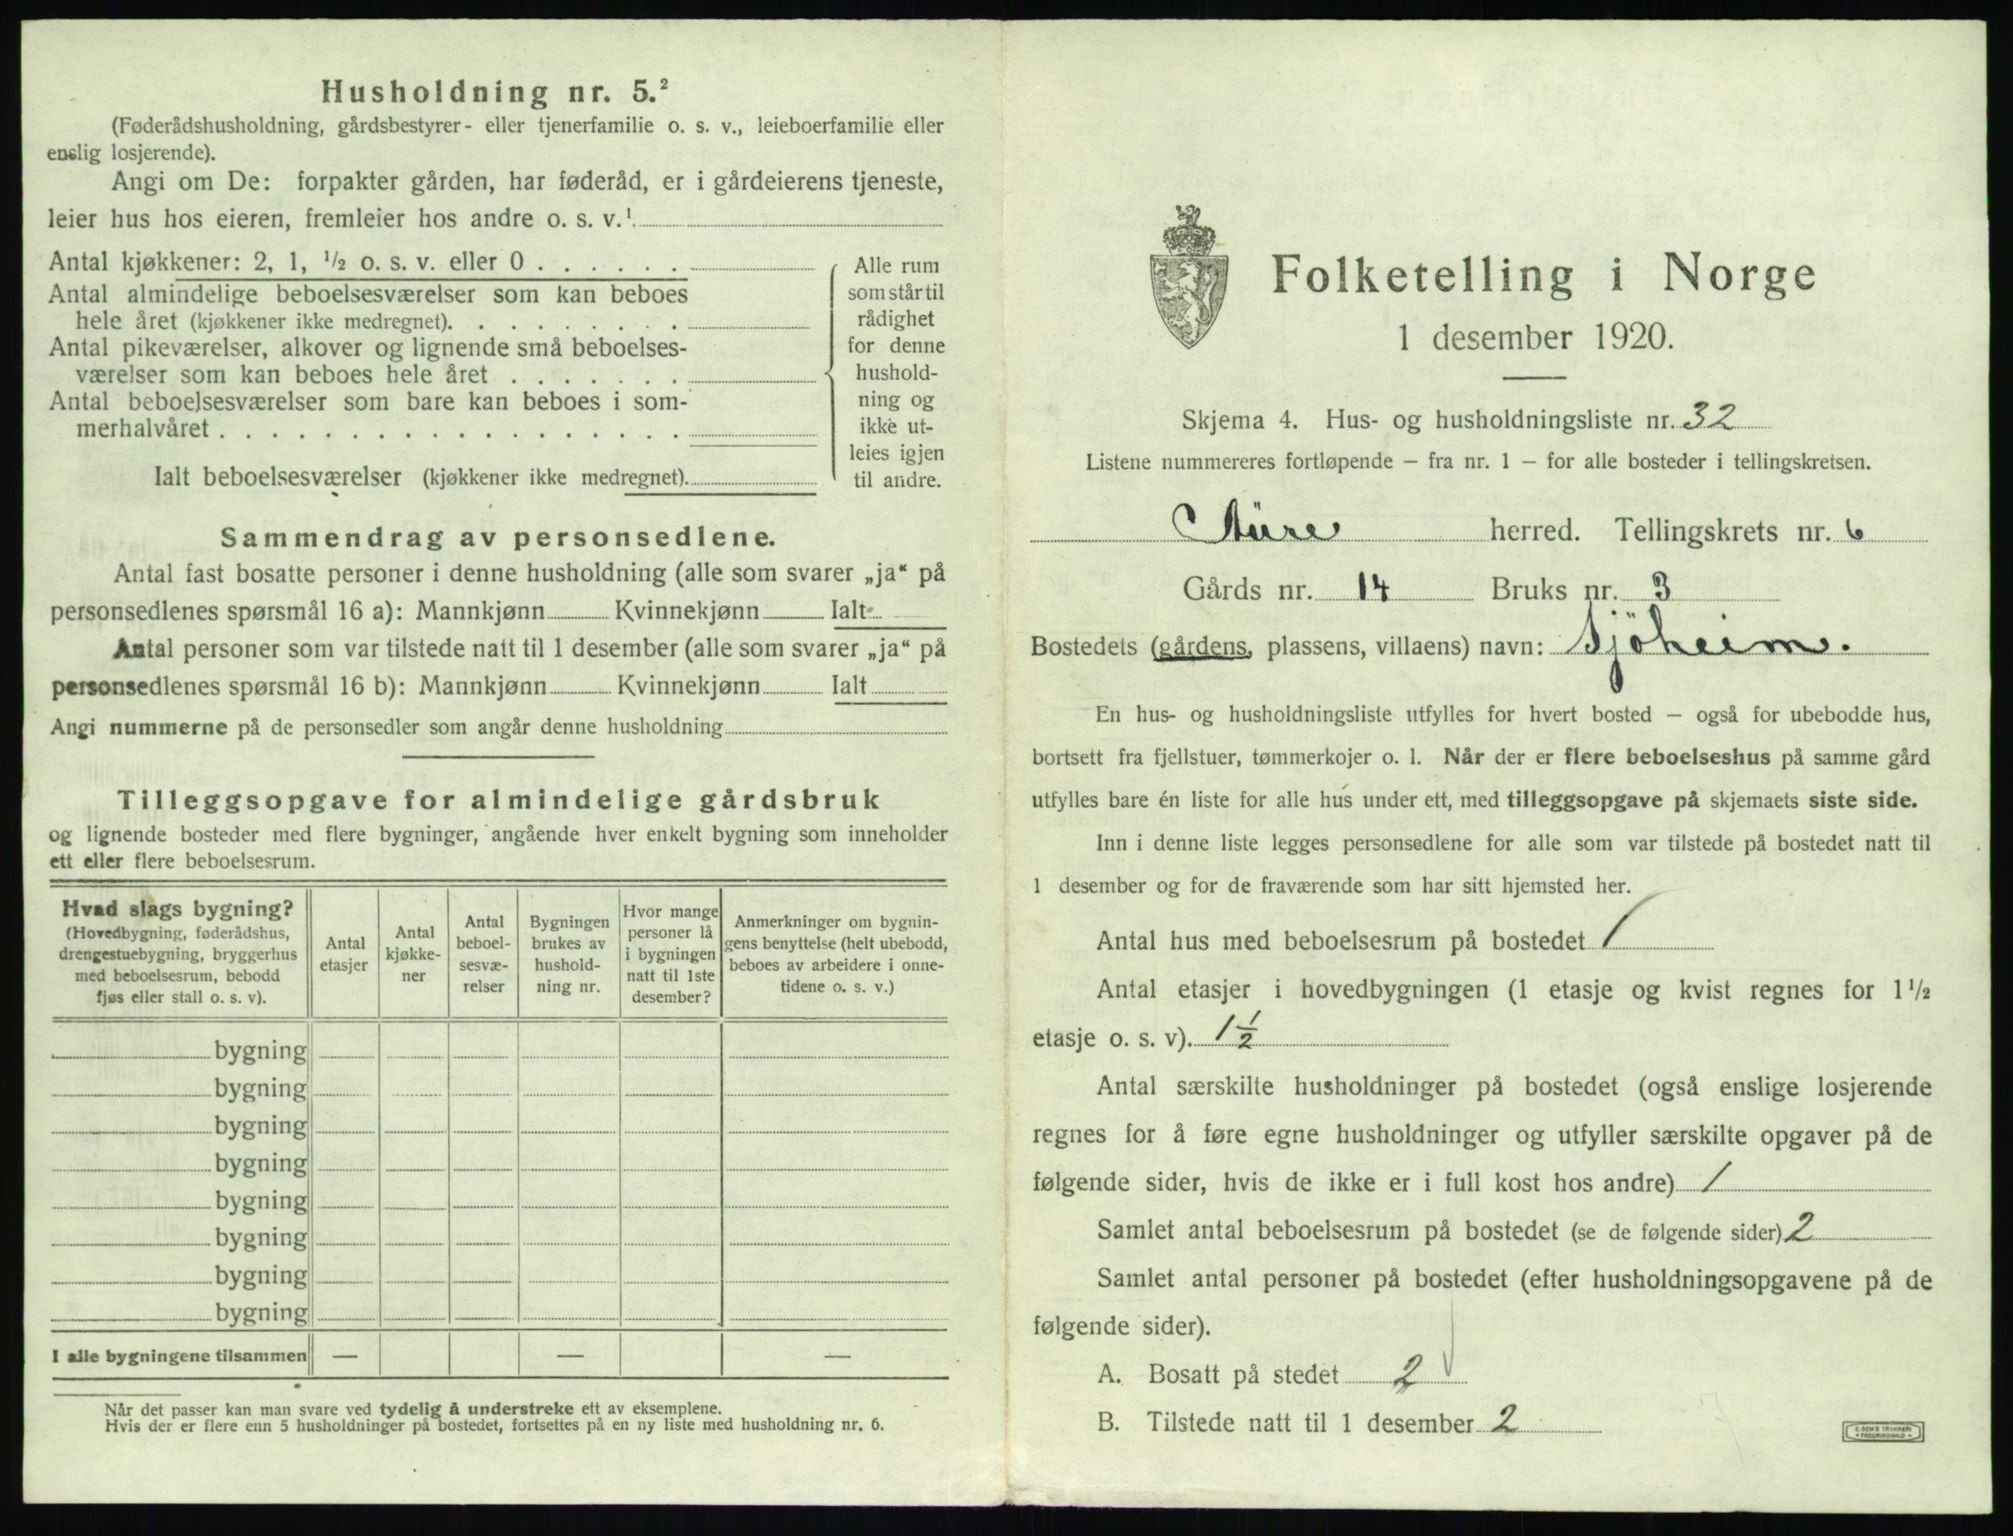 Husholdning nr. 5.²
(Føderådshusholdning, gårdsbestyrer- eller tjenerfamilie o. s. v., leieboerfamilie eller
enslig losjerende).
Angi om De: forpakter gården, har føderåd, er i gårdeierens tjeneste,
leier hus hos eieren, fremleier hos andre o. s. v.¹
Antal kjøkkener: 2, 1, ½ o. s. v. eller 0 . . . . . .
Antal almindelige beboelsesværelser som kan beboes
hele året (kjøkkener ikke medregnet). . . . . . . . .
Antal pikeværelser, alkover og lignende små beboelses-
værelser som kan beboes hele året . . . . . . .
Antal beboelsesværelser som bare kan beboes i som-
merhalvåret . . . . . . . . . . . . . . . . . .
Ialt beboelsesværelser (kjøkkener ikke medregnet).
Alle rum
som står til
rådighet
for denne
hushold-
ning og
ikke ut-
leies igjen
til andre.
Sammendrag av personsedlene.
Antal fast bosatte personer i denne husholdning (alle som svarer „ja“ på
personsedlenes spørsmål 16 a): Mannkjønn Kvinnekjønn Ialt
Antal personer som var tilstede natt til 1 desember (alle som svarer „ja“ på
personsedlenes spørsmål 16 b): Mannkjønn Kvinnekjønn Ialt
Angi nummerne på de personsedler som angår denne husholdning
Tilleggsopgave for almindelige gårdsbruk
og lignende bosteder med flere bygninger, angående hver enkelt bygning som inneholder
ett eller flere beboelsesrum.
Hvad slags bygning?
(Hovedbygning, føderådshus,
drengestuebygning, bryggerhus
med beboelsesrum, bebodd
fjøs eller stall o. s. v).
Antal
etasjer
Antal
kjøkke-
ner
Antal
beboel-
sesvæ-
relser
Bygningen
brukes av
hushold-
ning nr.
Hvor mange
personer lå
i bygningen
natt til 1ste
desember?
Anmerkninger om bygnin-
gens benyttelse (helt ubebodd,
beboes av arbeidere i onne-
tidene o. s. v.)
bygning
bygning
bygning
bygning
bygning
bygning
bygning
bygning
I alle bygningene tilsammen — — —
Når det passer kan man svare ved tydelig å understreke ett av eksemplene.
Hvis der er flere enn 5 husholdninger på bostedet, fortsettes på en ny liste med husholdning nr. 6.
Folketelling i Norge
1 desember 1920.
Skjema 4. Hus- og husholdningsliste nr. 32
Listene nummereres fortløpende — fra nr. 1 — for alle bosteder i tellingskretsen.
Aure herred. Tellingskrets nr. 6
Gårds nr. 14 Bruks nr. 3
Bostedets (gårdens, plassens, villaens) navn: Sjöheim.
En hus- og husholdningsliste utfylles for hvert bosted — også for ubebodde hus,
bortsett fra fjellstuer, tømmerkojer o. l. Når der er flere beboelseshus på samme gård
utfylles bare én liste for alle hus under ett, med tilleggsopgave på skjemaets siste side.
Inn i denne liste legges personsedlene for alle som var tilstede på bostedet natt til
1 desember og for de fraværende som har sitt hjemsted her.
Antal hus med beboelsesrum på bostedet 1
Antal etasjer i hovedbygningen (1 etasje og kvist regnes for 1½
etasje o. s. v). 1½
Antal særskilte husholdninger på bostedet (også enslige losjerende
regnes for å føre egne husholdninger og utfyller særskilte opgaver på de
følgende sider, hvis de ikke er i full kost hos andre) 1
Samlet antal beboelsesrum på bostedet (se de følgende sider) 2
Samlet antal personer på bostedet (efter husholdningsopgavene på de
følgende sider).
A. Bosatt på stedet 2
B. Tilstede natt til 1 desember 2